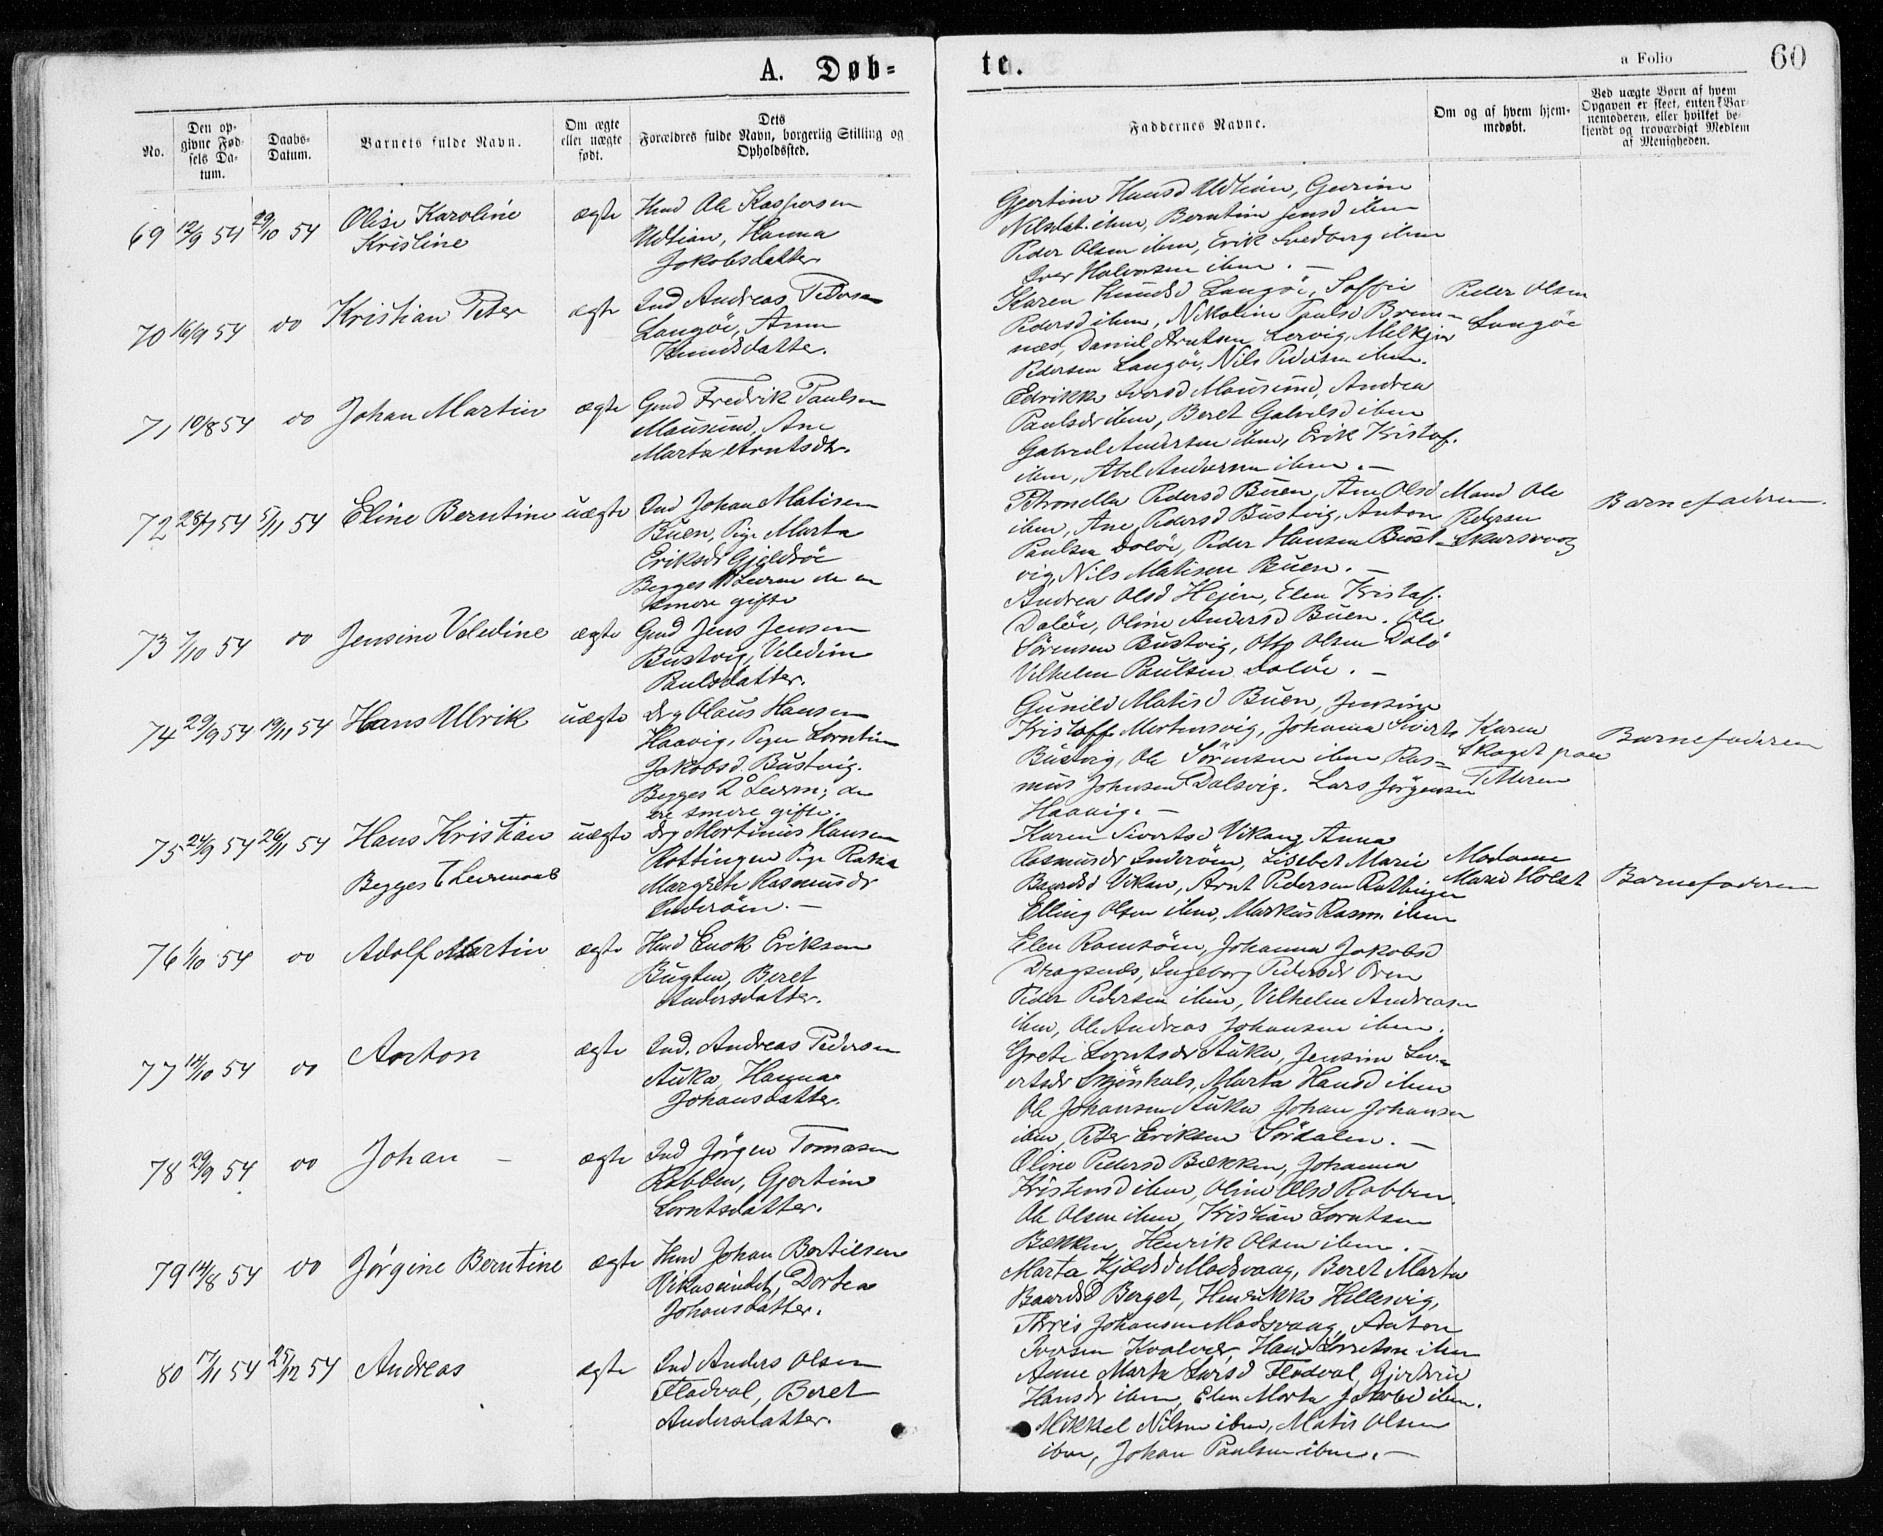 A. Døb=
te.
a Folio
60
No.
Den op-
givne Fød-
sels Da-
tum.
Daabs-
Datum.
Barnets fulde Navn.
Om ægte
eller uægte
født.
Dets
Forældres fulde Navn, borgerlig Stilling og
Opholdssted.
Faddernes Navne.
Om og af hvem hjem-
medøbt.
Ved uægte Børn af hvem
Opgaven er skeet, enten Bar-
nemoderen, eller hvilket be-
kjendt og troværdigt Medlem
af Menigheden.
69 12/9 54 29/10 54
Olise Karoline
Kristine
ægte
Hmd Ole Kaspersen
Udtian, Hanna
Jakobsdatter.
Gjertine Hansd Udtian, Gurine
Nilsdat. ibm, Berntine Jensd ibm
Peder Olsen ibm, Erik Svedberg ibm
Iver Halvorsen ibm. —
70 16/9 54 oo
Kristian Peter
ægte
Ind Andreas Pedersen
Langöi, Anne
Knudsdatter.
Karen Knudsd Langöi, Soffie
Pedersd ibm, Nikoline Paulsd Brem-
næs, Daniel Arntsen Lervig, Melkjor
Pedersen Langöi, Nils Pedersen ibm.
Peder Olsen
Langöi
71 10/8 54 oo
Johan Martin
ægte
Gmd Fredrik Paulsen
Mausund, Ane
Marta Arntsdtr.
Edrikke Iversd Mausund, Andrea
Paulsdr ibm, Beret Gabrielsd ibm
Gabriel Andersen ibm, Erik Kristof.
ibm, Abel Andersen ibm. —
72 28/7 54 5/11 54
Eline Berntine
uægte
Ind Johan Matisen
Buen, Pige Marta
Eriksdr Gjeldsöi
Begges 1 Leierm de er
smere gifte
Petronella Pedersd Buen, Ane Olsd
ibm, Ane Pedersd Bustvig, Anton
Paulsen Dolöi, Peder Hansen Bust-
vig, Nils Matisen Buen. —
Mand Ole
Pedersen
Skarsvaag
Barnefaderen.
73 7/10 54 oo
Jensine Veledine
ægte
Gmd Jens Jensen
Bustvig, Veledine
Paulsdatter.
Andrea Olsd Hejen, Elen Kristof.
Dolöi, Oline Andersd Buen. Ole
Sörensen Bustvig, Otto Olsen Dolö
Vilhelm Paulsen Dolöi. —
74 29/9 54 19/11 54
Hans Ulrik
uægte
Drg Olaus Hansen
Haavig, Pigen Lorntine
Jakobsd. Bustvig.
Begges 2 Leierm; de
ere smere gifte.
Gunild Matisd Buen, Jensine
Kristoff. Mortensvig, Johanna Siverts
Bustvig, Ole Sörensen ibm Ras-
mus Johnsen Dalsvig. Lars Jörgensen
Haavig. —
Karen
Skaget paa
Titteren
Barnefaderen
75 24/9 54 26/11 54
Hans Kristian
Begges 1 Leiermaal
uægte
Drg Mortinus Hansen
Rottingen Pige
Margrete Rasmusdr
Inderöen. —
Karen Sivertsd Vikan, Anna
Rasmusdr Inderöen, Lisebet Marie
Baardsd Vikan, Arnt Pedersen Rottingen
Elling Olsen ibm, Markus Rasm. ibm
Madame
Marie Holst
Barnefaderen
76 1/10 54 oo
Adolf Martin
ægte
Hmd Enok Eriksen
Bugten, Beret
Andersdatter.
Elen Ramsöin, Johanna Jakobsd
Dragsnæs, Ingeborg Pedersdr
Peder Pedersen ibm, Vilhelm Andreasen
ibm, Ole Andreas Johansen ibm.
77 14/10 54 oo
Anton
ægte
Ind. Andreas Pedersen
Auka, Hanna
Johansdatter.
Grete Lorntsdr Auka, Jensine Siv-
ertsdr Skjönhals, Marta Hansd ibm
Ole Johansen Auka Johan Johansen
ibm, Peter Eriksen Sördalen. —
78 29/9 54 oo
Johan —
ægte
Ind Jörgen Tomasen
Rabben, Gjertine
Lorntsdatter.
Oline Pedersd Bækken, Johanna
Kristensd ibm, Oline Olsd Rabben.
Ole Olsen ibm, Kristian Lorntsen
Bækken, Henrik Olsen ibm. —
79 14/8 54 oo
Jørgine Berntine
ægte
Hmd Johan Bertilsen
Vikasundet, Dortea
Johansdatter.
Marta Kjeldsd Madsvaag, Beret Marta
Baardsd Berget, Henrikke Hellesvig,
Torris Johansen Madsvaag, Anton
Iversen Kvalvær, Hans Lorntsen ibm
80 17/11 54 25/12 54
Andreas
ægte
Ind Anders Olsen
Fladval, Beret
Andersdatter.
Anne Marta Larsd Fladval, Gjertrue
Hansdr ibm, Elen Marta Jakobsd ibm.
Mikkel Nilsen ibm, Matis Olsen
ibm, Johan Paulsen ibm. —